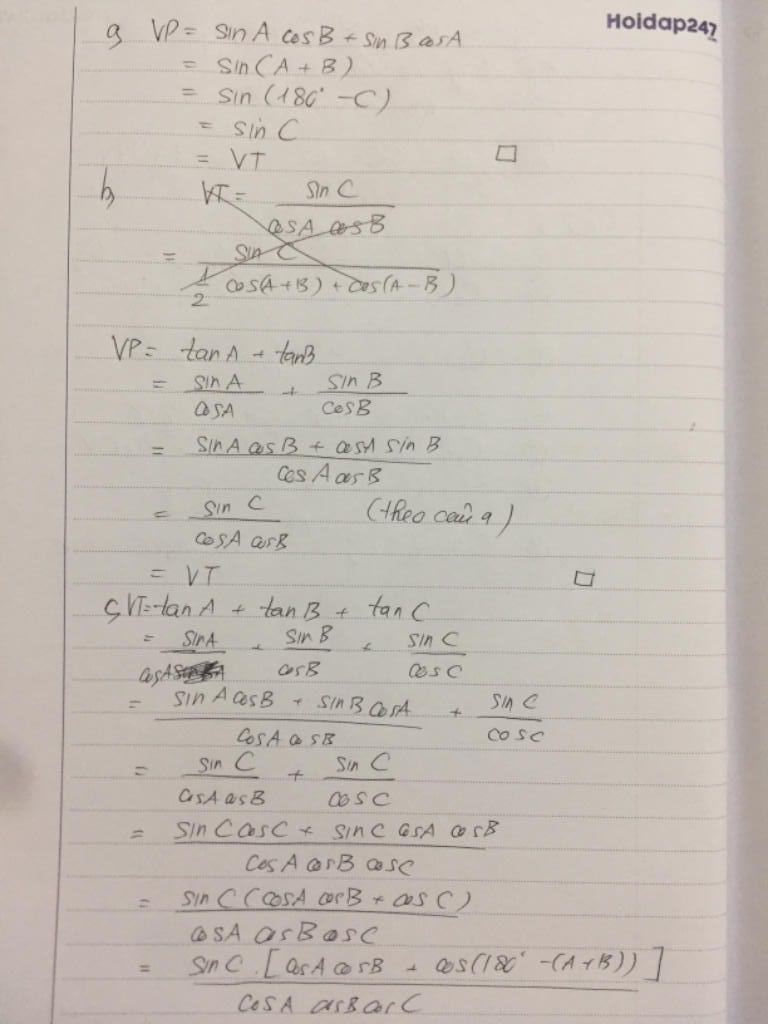 Hoidap247
a, VP = sin A cos B + sin B cos A
= sin (A + B)
= sin (180° - C)
= sin C
= VT □
b, VT = sin C / cos A cos B
= sin C / 1/2 cos(A + B) + cos(A - B)
VP = tan A + tan B
= sin A / cos A + sin B / cos B
= sin A cos B + cos A sin B / cos A cos B
= sin C / cos A cos B (theo câu a)
= VT □
c, VT = tan A + tan B + tan C
= sin A / cos A + sin B / cos B + sin C / cos C
= sin A cos B + sin B cos A / cos A cos B + sin C / cos C
= sin C / cos A cos B + sin C / cos C
= sin C cos C + sin C cos A cos B / cos A cos B cos C
= sin C (cos A cos B + cos C) / cos A cos B cos C
= sin C . [cos A cos B + cos(180° - (A + B))] / cos A cos B cos C